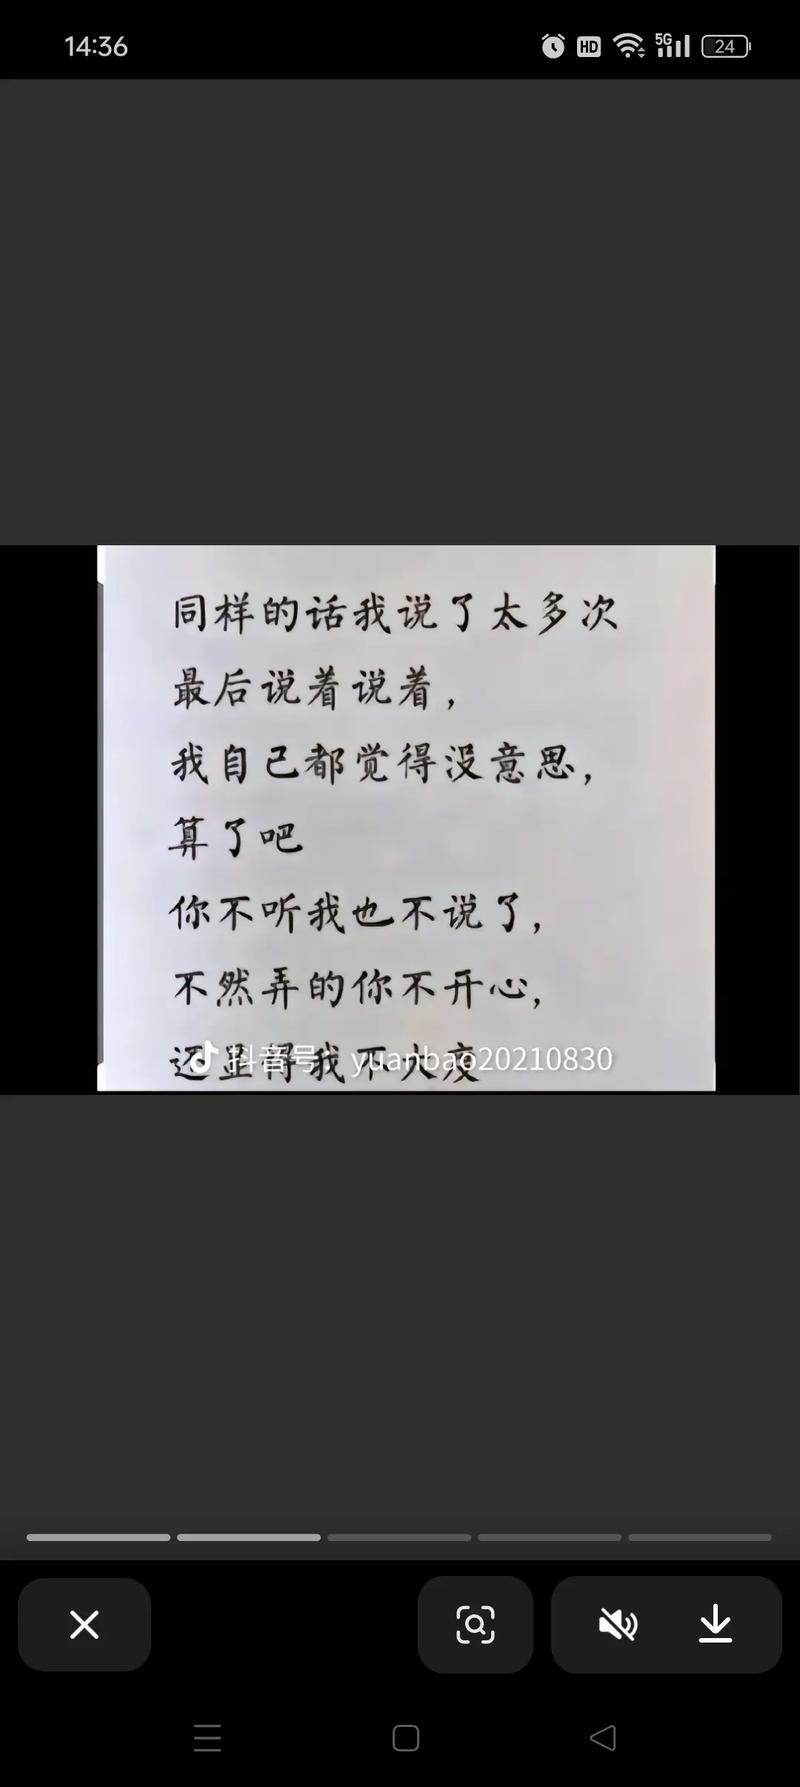 14:36
HD
5G
24
同样的话我说了太多次
最后说着说着，
我自己都觉得没意思，
算了吧
你不听我也不说了，
不然弄的你不开心，
还显得我不火疫
抖音号： yuanbao20210830